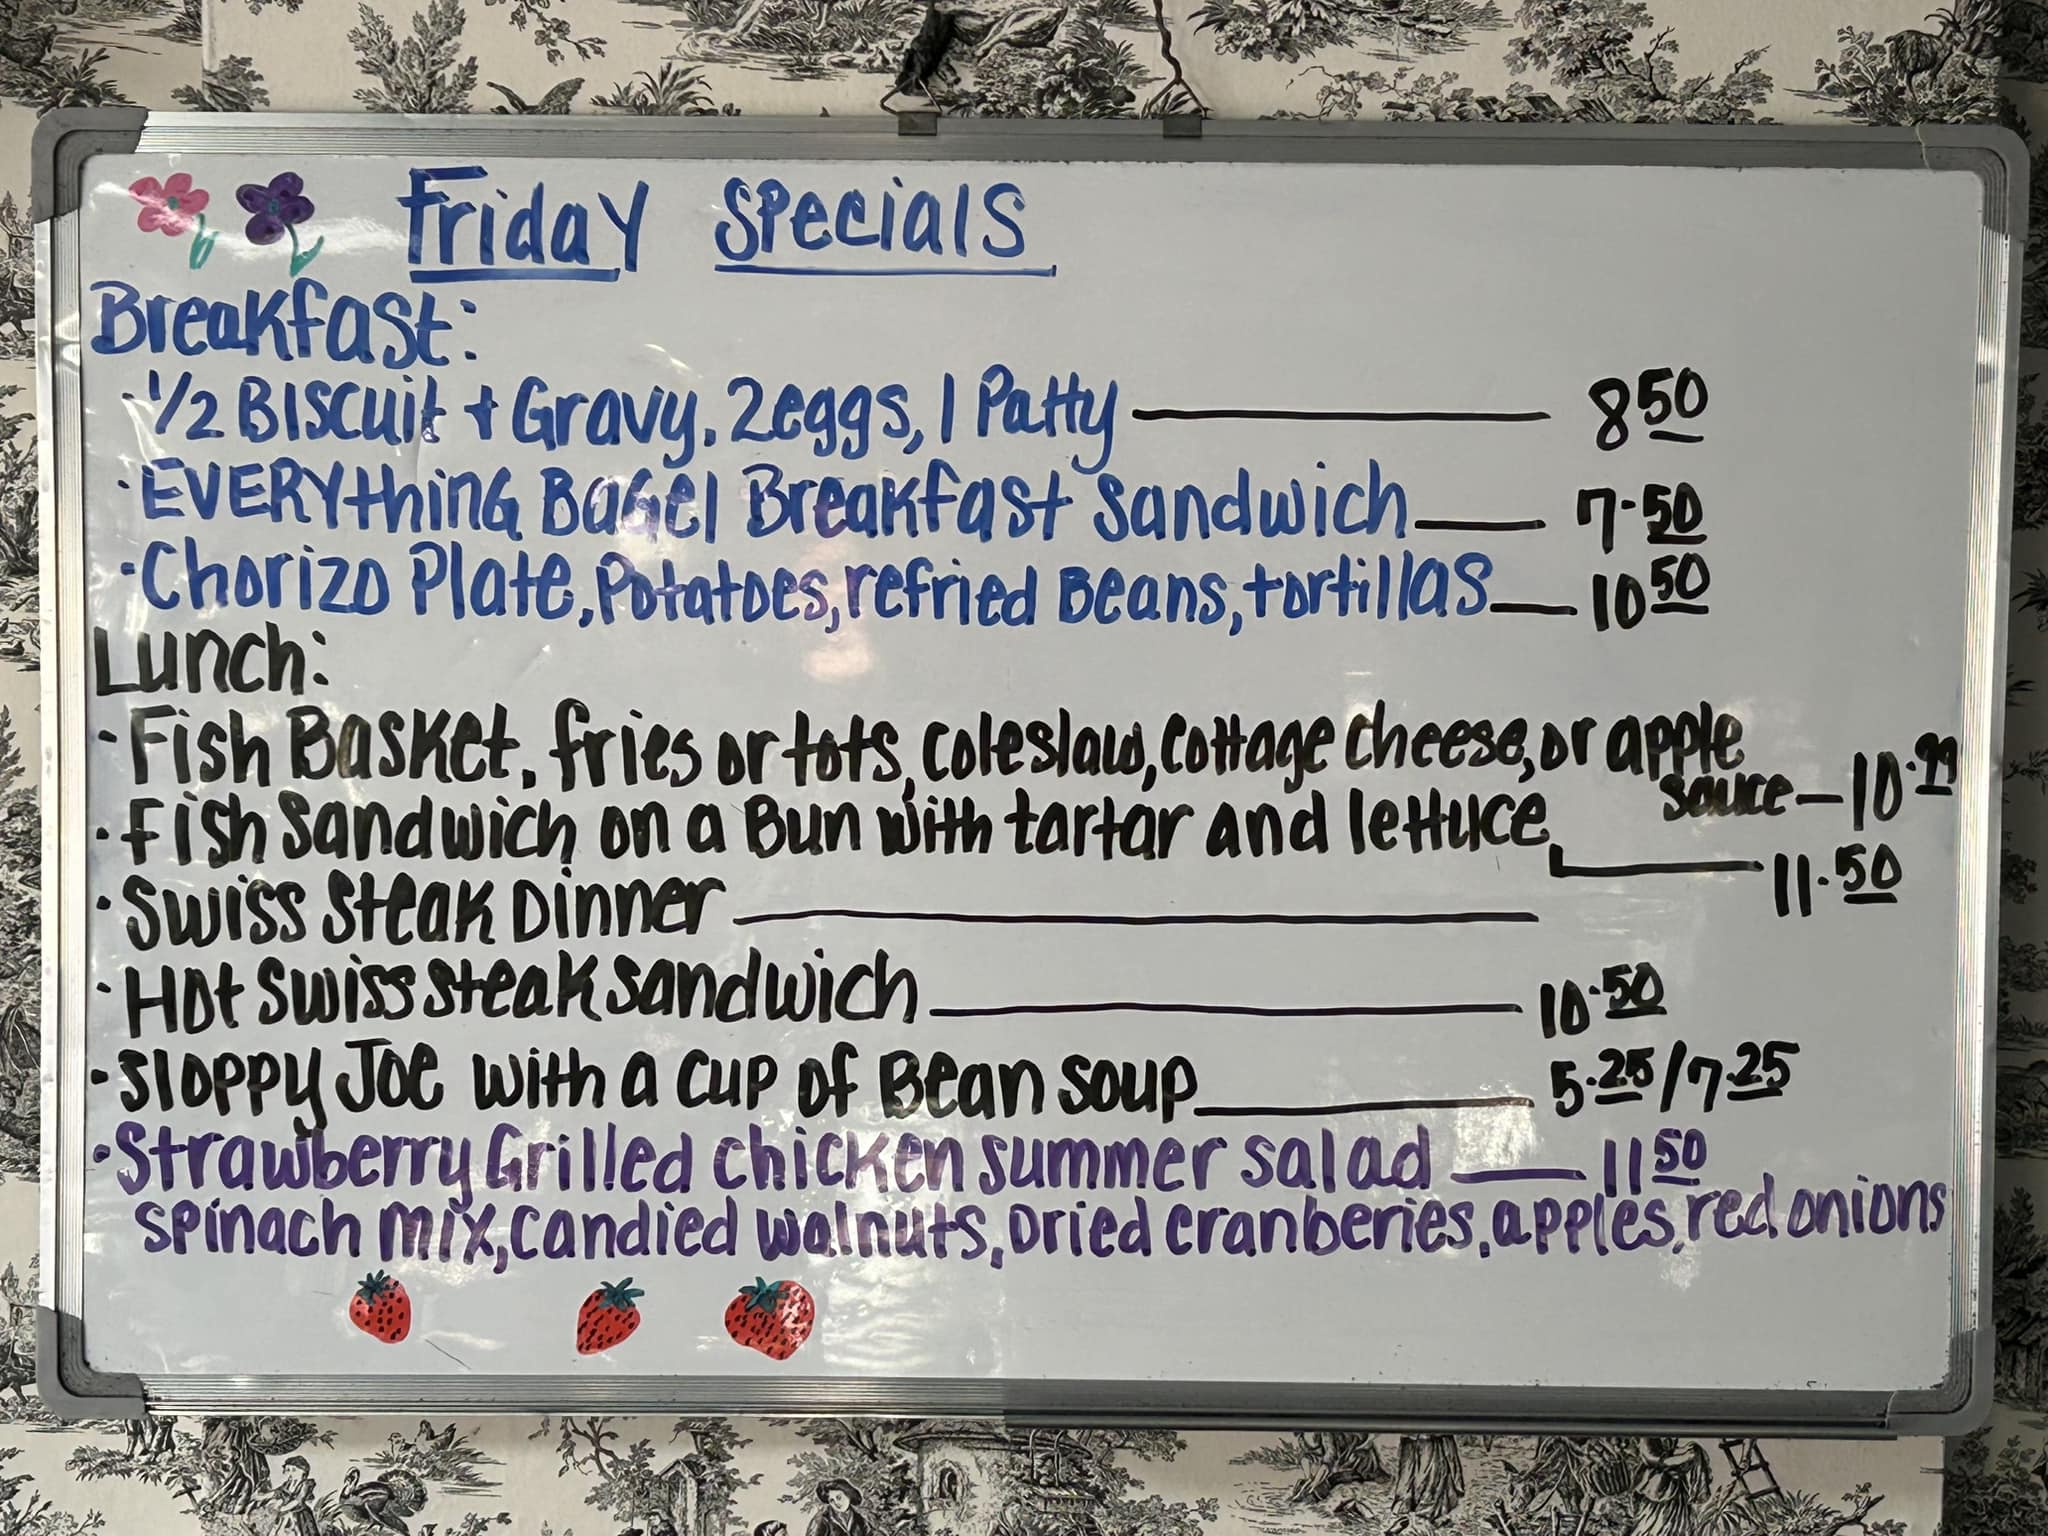 Friday Specials
Breakfast:
· 1/2 Biscuit + Gravy, 2 eggs, 1 Patty — 8 50
· EVERYthing Bagel Breakfast Sandwich — 7.50
· Chorizo Plate, Potatoes, refried Beans, tortillas — 10 50
Lunch:
· Fish Basket, fries or tots, coleslaw, cottage cheese, or apple
sauce — 10.99
· Fish Sandwich on a Bun with tartar and lettuce — 11.50
· Swiss Steak Dinner —
· Hot Swiss steak sandwich — 10.50
· Sloppy Joe with a cup of Bean soup — 5.25/7.25
· Strawberry Grilled chicken summer salad — 11 50
spinach mix, candied walnuts, Dried cranberries, apples, red onions